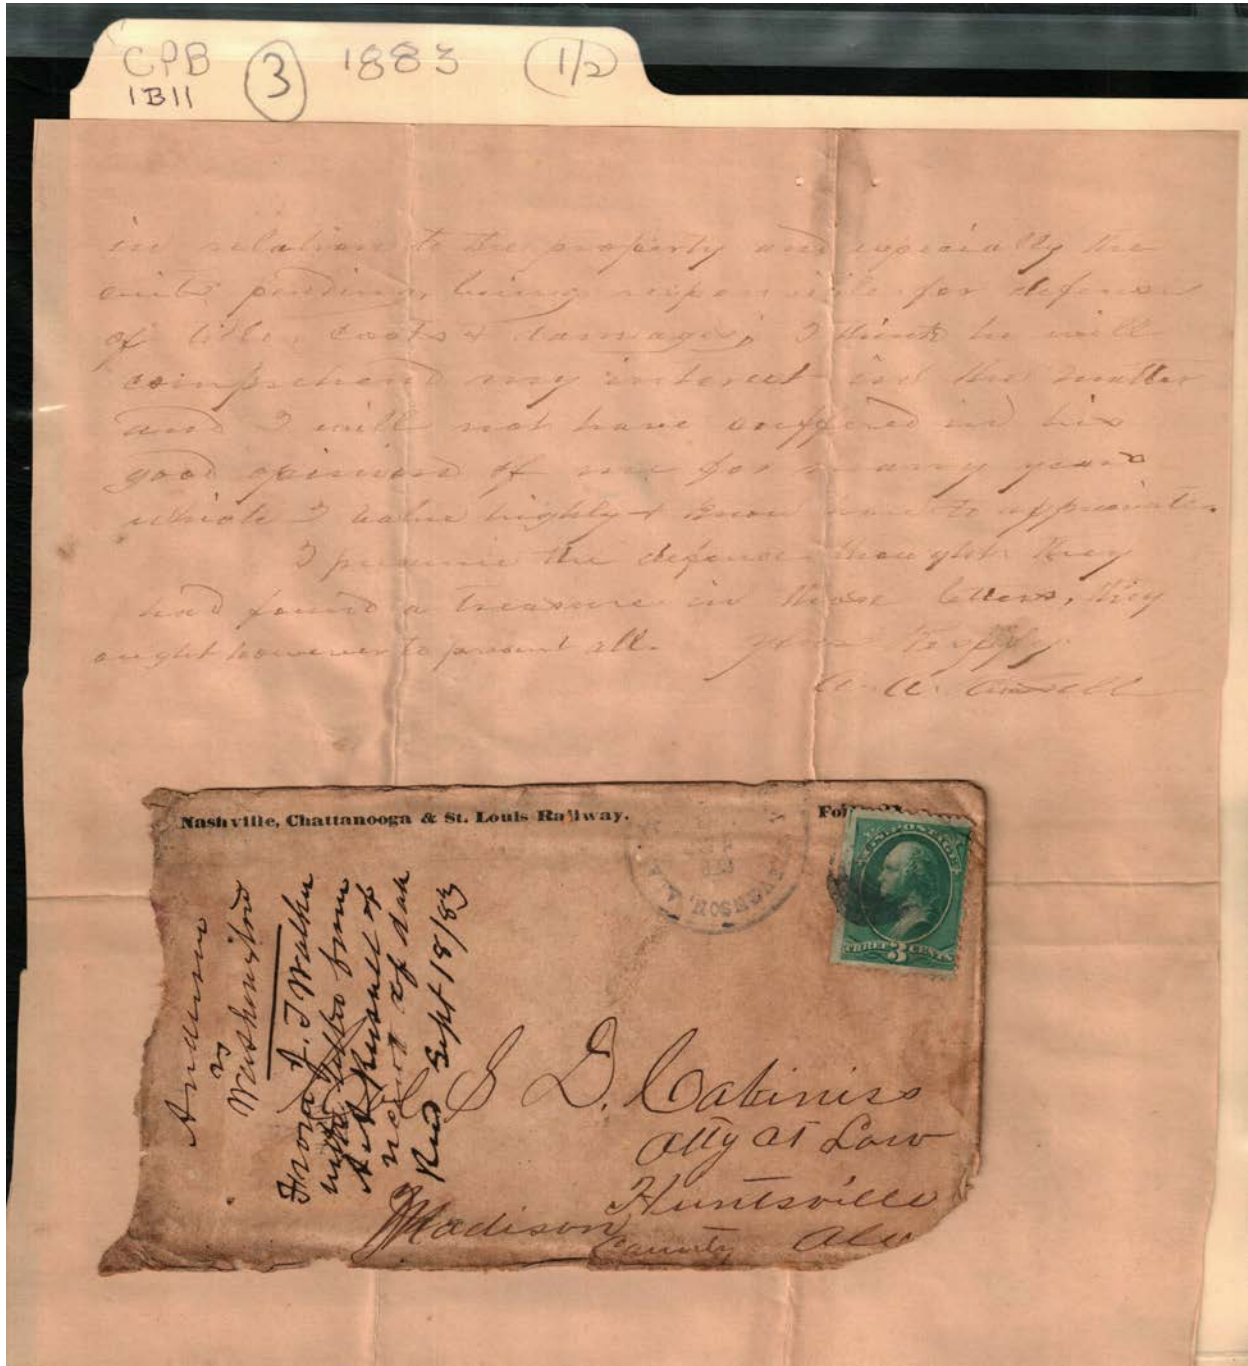 CPB
1B11
3
1883
1/2
in relation to the property and especially the
suits pending, being responsible for defense
of title, costs & damages; I think he will
comprehend my interest in the matter
and I will not have suffered in his
good opinion of me for many years
which I value highly & know how to appreciate.
I presume the defense thought they
had found a treasure in those letters, they
ought however to present all. yours Respfly
Nashville, Chattanooga & St. Louis Railway.
STEVENSON, ALA.
U.S. POSTAGE
THREE 3 CENTS
Anderson
vs
Washington
From J. T. Walker
with letter from
A A Russell of
of date
Recd Sept 18/83
S D. Cabiniss
Atty at Law
Huntsville
Madison County Ala